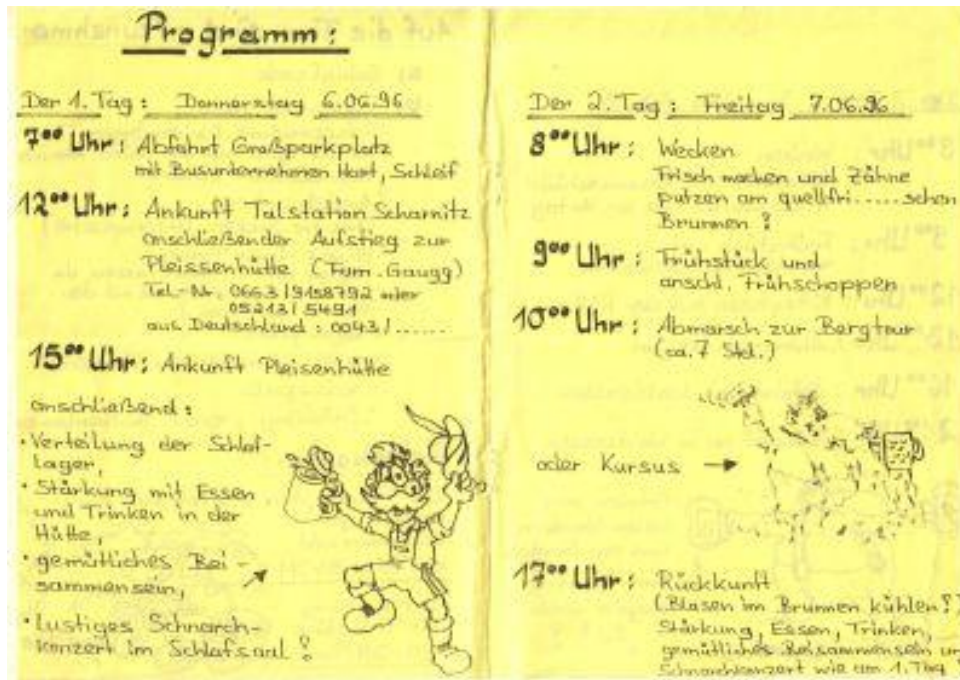 Programm:
Der 1. Tag: Donnerstag 6.06.96
7⁰⁰ Uhr: Abfahrt Großparkplatz
mit Busunternehmen Hart, Schleif
12⁰⁰ Uhr: Ankunft Talstation Scharnitz
anschließender Aufstieg zur
Pleissenhütte (Fam. Gaugg)
Tel.-Nr. 0663/9158792 oder
05213/5491
aus Deutschland: 0043/......
15⁰⁰ Uhr: Ankunft Pleisenhütte
anschließend:
• Verteilung der Schlaf-
lager,
• Stärkung mit Essen
und Trinken in der
Hütte,
• gemütliches Bei-
sammensein,
• lustiges Schnarch-
konzert im Schlafsaal!
Der 2. Tag: Freitag 7.06.96
8⁰⁰ Uhr: Wecken
Frisch machen und Zähne
putzen am quellfri.....schen
Brunnen!
9⁰⁰ Uhr: Frühstück und
anschl. Frühschoppen
10⁰⁰ Uhr: Abmarsch zur Bergtour
(ca. 7 Std.)
oder Kursus →
17⁰⁰ Uhr: Rückkunft
(Blasen im Brunnen kühlen!)
Stärkung, Essen, Trinken,
gemütliches Beisammensein un
Schnarchkonzert wie am 1. Tag!